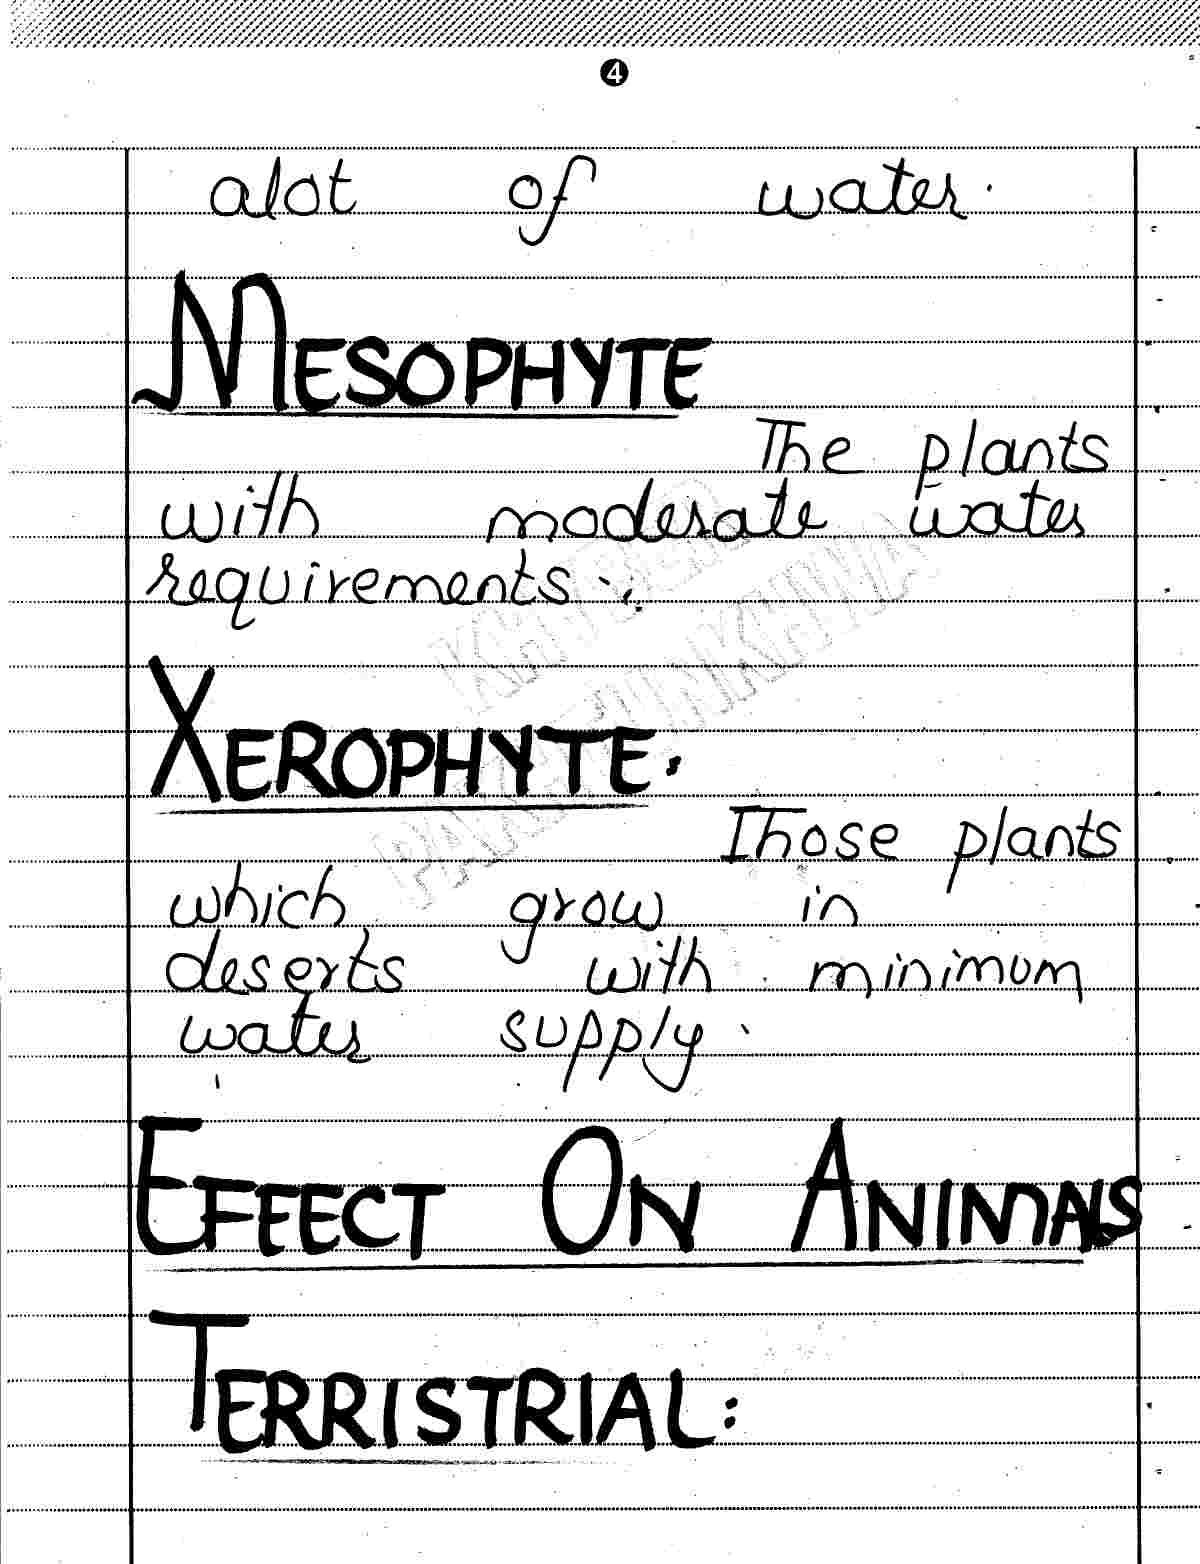 4
alot of water.
MESOPHYTE
The plants
with moderate water
requirements.
XEROPHYTE.
Those plants
which grow in
deserts with minimum
water supply.
EFFECT ON ANIMALS
TERRISTRIAL:
KHYBER
PAKHTUNKHWA